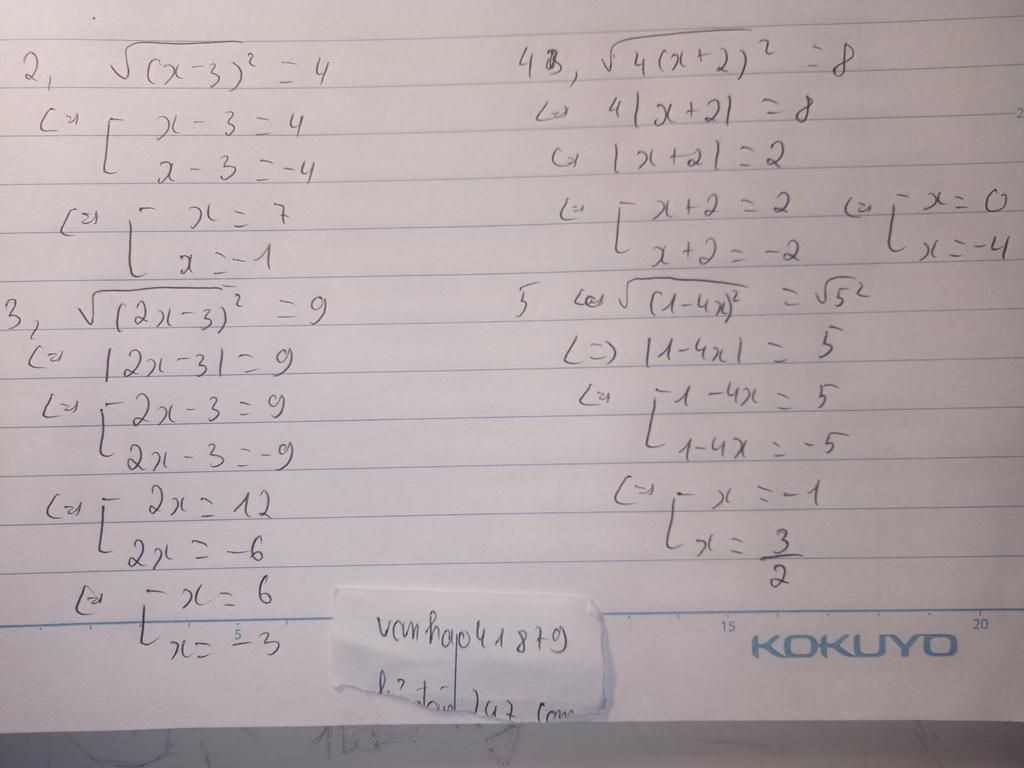 2, √(x-3)² = 4
<=> [ x - 3 = 4
x - 3 = -4
<=> [ x = 7
x = -1
3, √(2x-3)² = 9
<=> |2x-3| = 9
<=> [ 2x - 3 = 9
2x - 3 = -9
<=> [ 2x = 12
2x = -6
<=> [ x = 6
x = -3
4, √4(x+2)² = 8
<=> 4|x+2| = 8
<=> |x+2| = 2
<=> [ x+2 = 2 <=> [ x = 0
x+2 = -2 x = -4
5 <=> √(1-4x)² = √5²
<=> |1-4x| = 5
<=> [ 1-4x = 5
1-4x = -5
<=> [ x = -1
x = 3/2
vanhao41879
247 com
5 15 20
KOKUYO